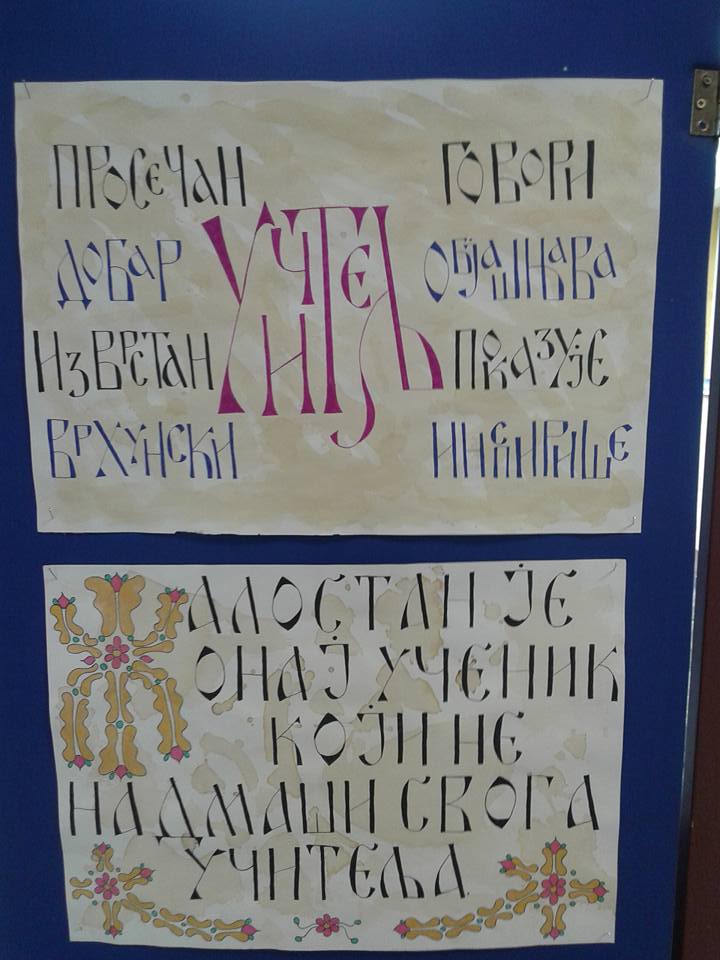 ПРОСЕЧАН ГОВОРИ
УЧИТЕЉ
ДОБАР ОБЈАШЊАВА
ИЗВРСТАН ПОКАЗУЈЕ
ВРХУНСКИ ИНСПИРИШЕ
ЖАЛОСТАН ЈЕ
ОНАЈ УЧЕНИК
КОЈИ НЕ
НАДМАШИ СВОГА
УЧИТЕЉА